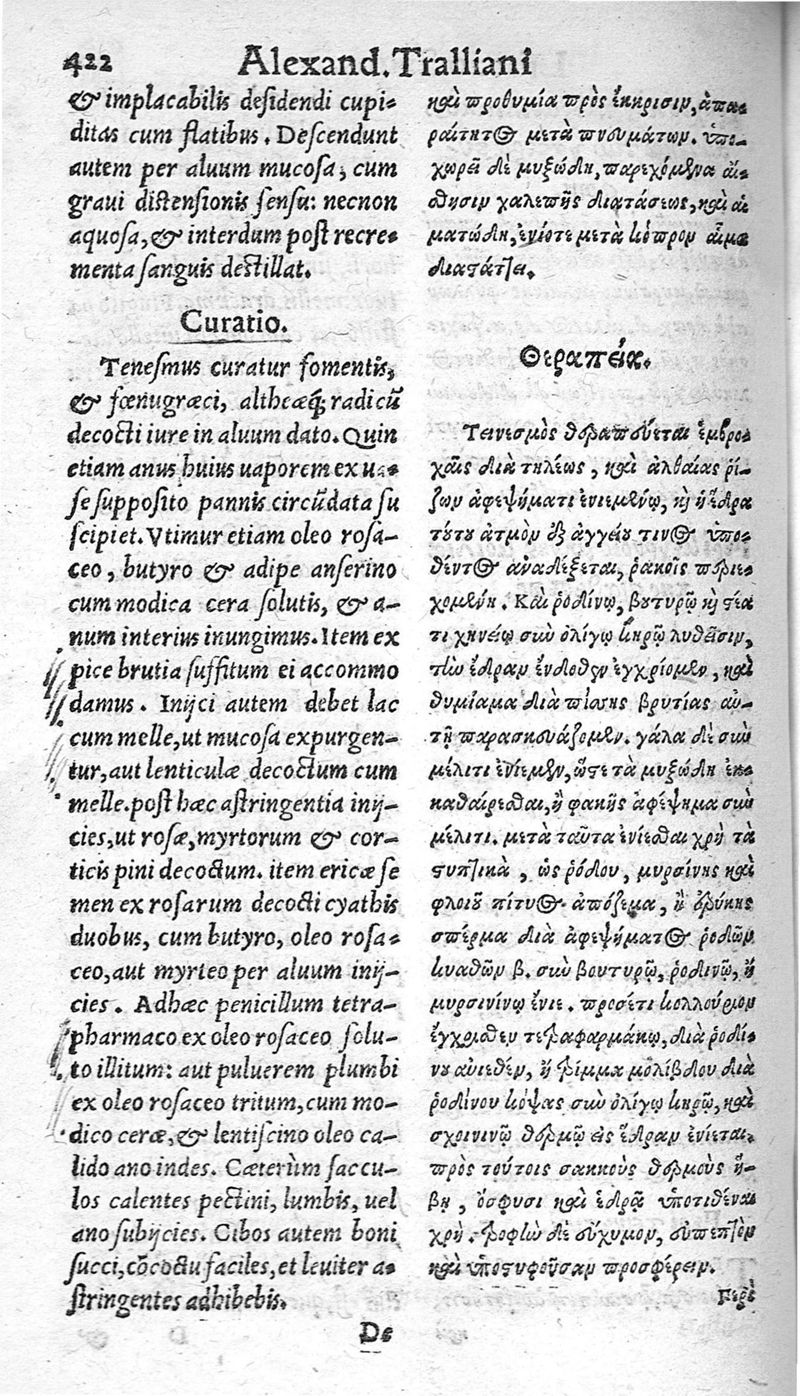 422 Alexand. Tralliani
& implacabilis desidendi cupi-
ditas cum flatibus. Descendunt
autem per aluum mucosa, cum
graui distensionis sensu: necnon
aquosa, & interdum post recre-
menta sanguis destillat.
Curatio.
Tenesmus curatur fomentis,
& fœnugræci, altheæq; radicũ
decocti iure in aluum dato. Quin
etiam anus huius uaporem ex ua-
se supposito pannis circũdata su
scipiet. Vtimur etiam oleo rosa-
ceo, butyro & adipe anserino
cum modica cera solutis, & a-
num interius inungimus. Item ex
pice brutia suffitum ei accommo
damus. Inijci autem debet lac
cum melle, ut mucosa expurgen-
tur, aut lenticulæ decoctum cum
melle. post hæc astringentia inij-
cies, ut rosæ, myrtorum & cor-
ticis pini decoctum. item ericæ se
men ex rosarum decocti cyathis
duobus, cum butyro, oleo rosa-
ceo, aut myrteo per aluum inij-
cies. Adhæc penicillum tetra-
pharmaco ex oleo rosaceo solu-
to illitum: aut puluerem plumbi
ex oleo rosaceo tritum, cum mo-
dico ceræ, & lentiscino oleo ca-
lido ano indes. Cæterùm saccu-
los calentes pectini, lumbis, uel
ano subijcies. Cibos autem boni
succi, cõcoctu faciles, et leuiter a-
stringentes adhibebis.
De
καὶ προθυμία πρὸς ἔκκρισιν, ἀπα-
ραίτητος μετὰ πνευμάτων. ὑπο-
χωρεῖ δὲ μυξώδη, παρεχόμενα αἴ-
σθησιν χαλεπῆς διατάσεως, καὶ αἱ
ματώδη, ἐνίοτε μετὰ κόπρον αἷμα
διαστάζει.
Θεραπεία.
Τεινεσμὸς θεραπεύεται ἐμβρο-
χαῖς διὰ τήλεως, καὶ ἀλθαίας ῥί-
ζων ἀφεψήματι ἐνιεμένῳ, καὶ ἡ ἕδρα
τούτου ἀτμὸν ἐξ ἀγγείου τινος ὑπο-
θέντος ἀναδέξεται, ῥάκοις περιε-
χομένη. Καὶ ῥοδίνῳ, βουτυρῷ καὶ στέα
τι χηνείῳ σὺν ὀλίγῳ κηρῷ λυθεῖσιν,
τὴν ἕδραν ἔνδοθεν ἐγχρίομεν, καὶ
θυμίαμα διὰ πίσσης βρυτίας αὐ-
τῇ παρασκευάζομεν. γάλα δὲ σὺν
μέλιτι ἐνίεμεν, ὥστε τὰ μυξώδη ἐκ-
καθαίρεσθαι, ἢ φακῆς ἀφέψημα σὺν
μέλιτι. μετὰ ταῦτα ἐνίεσθαι χρὴ τὰ
στυπτικὰ, ὡς ῥόδου, μυρσίνης καὶ
φλοιοῦ πίτυος ἀπόζεμα, ἢ ἐρύκης
σπέρμα διὰ ἀφεψήματος ῥοδῶν
κυαθῶν β. σὺν βουτυρῷ, ῥοδινῷ, ἢ
μυρσινίνῳ ἐνίε. προσέτι κολλούριον
τετραφαρμάκῳ, διὰ ῥοδί-
νου ἀνιεθέν, ἢ τρίμμα μολίβδου διὰ
ῥοδίνου κόψας σὺν ὀλίγῳ κηρῷ, καὶ
σχοινινῷ θερμῷ εἰς ἕδραν ἐνίεται.
πρὸς τούτοις σακκοὺς θερμοὺς ἥ-
βῃ, ὀσφυσι καὶ ἑδρᾷ ὑποτιθέναι
χρή. τροφὴν δὲ εὔχυμον, εὔπεπτον
καὶ ὑποστυφοῦσαν προσφέρειν.
Περὶ